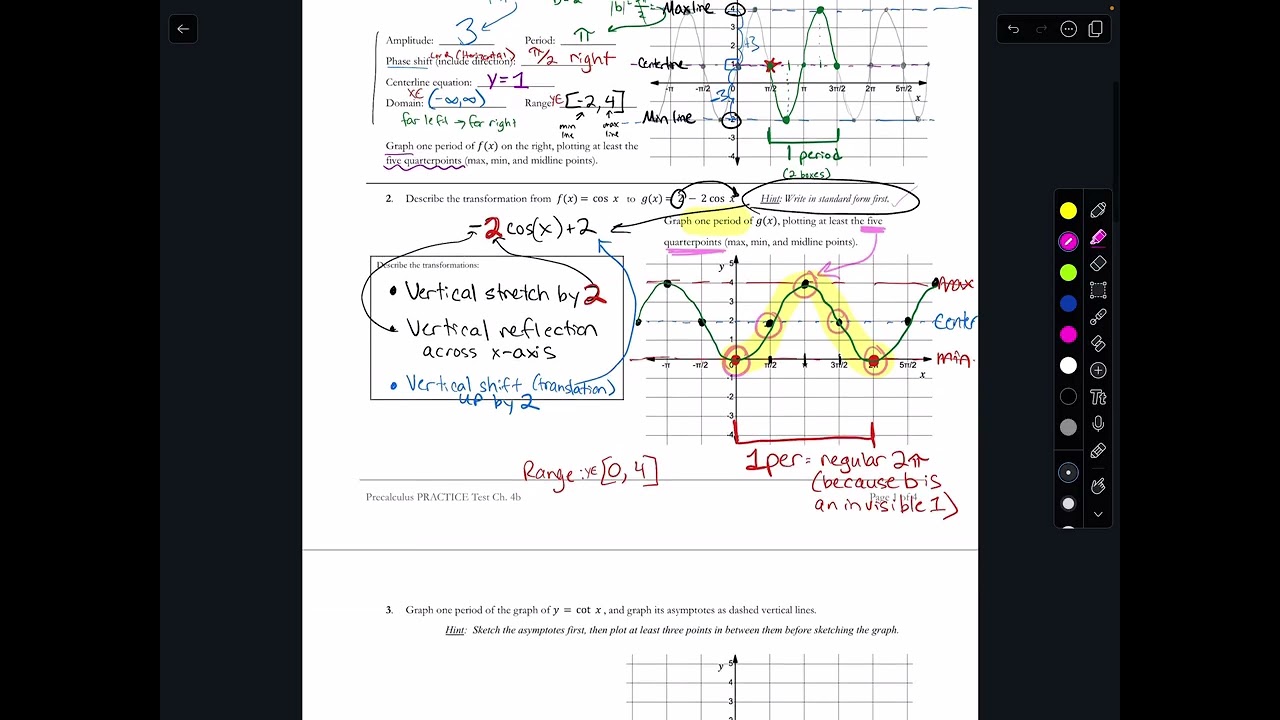 Amplitude: 3 Period: π
Phase shift (include direction): π/2 right
Centerline equation: y=1
Domain: x∈ (-∞,∞) Range: y∈ [-2,4]
far left → far right
min line
max line
Graph one period of f(x) on the right, plotting at least the
five quarterpoints (max, min, and midline points).
Max line
Centerline
Min line
+3
-3
4
1
-2
-3
-4
-π -π/2 0 π/2 π 3π/2 2π 5π/2
x
1 period
(2 boxes)
2. Describe the transformation from f(x) = cos x to g(x) = 2 − 2 cos x Hint: Write in standard form first.
= -2 cos(x)+2
Graph one period of g(x), plotting at least the five
quarterpoints (max, min, and midline points).
Describe the transformations:
• Vertical stretch by 2
• Vertical reflection
across x-axis
• Vertical shift (translation)
up by 2
y
5
4
3
2
-1
-2
-3
-4
-π -π/2 0 π/2 π 3π/2 2π 5π/2
x
max
center
min.
Range: y∈ [0, 4]
1 per = regular 2π
(because b is
an invisible 1)
Precalculus PRACTICE Test Ch. 4b
Page 1 of 4
3. Graph one period of the graph of y = cot x, and graph its asymptotes as dashed vertical lines.
Hint: Sketch the asymptotes first, then plot at least three points in between them before sketching the graph.
y
5
4
3
2
Tt